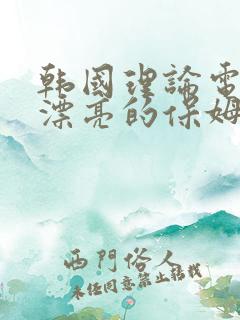 韩國理論電
漂亮的保姆
西門俗人
未经同意禁止转载